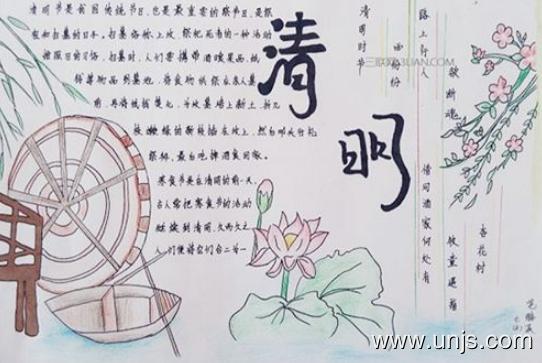 清明节是我国传统节日,也是最重要的祭节日,是祭
祖和扫墓的日子。扫墓俗称上坟,祭祀死者的一种活动
按照旧的习俗,扫墓时,人们要携带酒食果品,纸
钱等物品到墓地,将食物供祭在亲人墓
前,再将纸钱焚化,为坟墓培上新土,折几
枝嫩绿的新枝插在坟上,然后叩头行礼
祭拜,最后吃掉酒食回家。
寒食节是在清明的前一天,
古人常把寒食节的活动
延续到清明,久而久之
人们便将它们合二为一
清明
清明时节
雨纷
路上行人
欲断魂
借问酒家何处有
牧童遥指
杏花村
3LIAN.COM
www.unjs.com